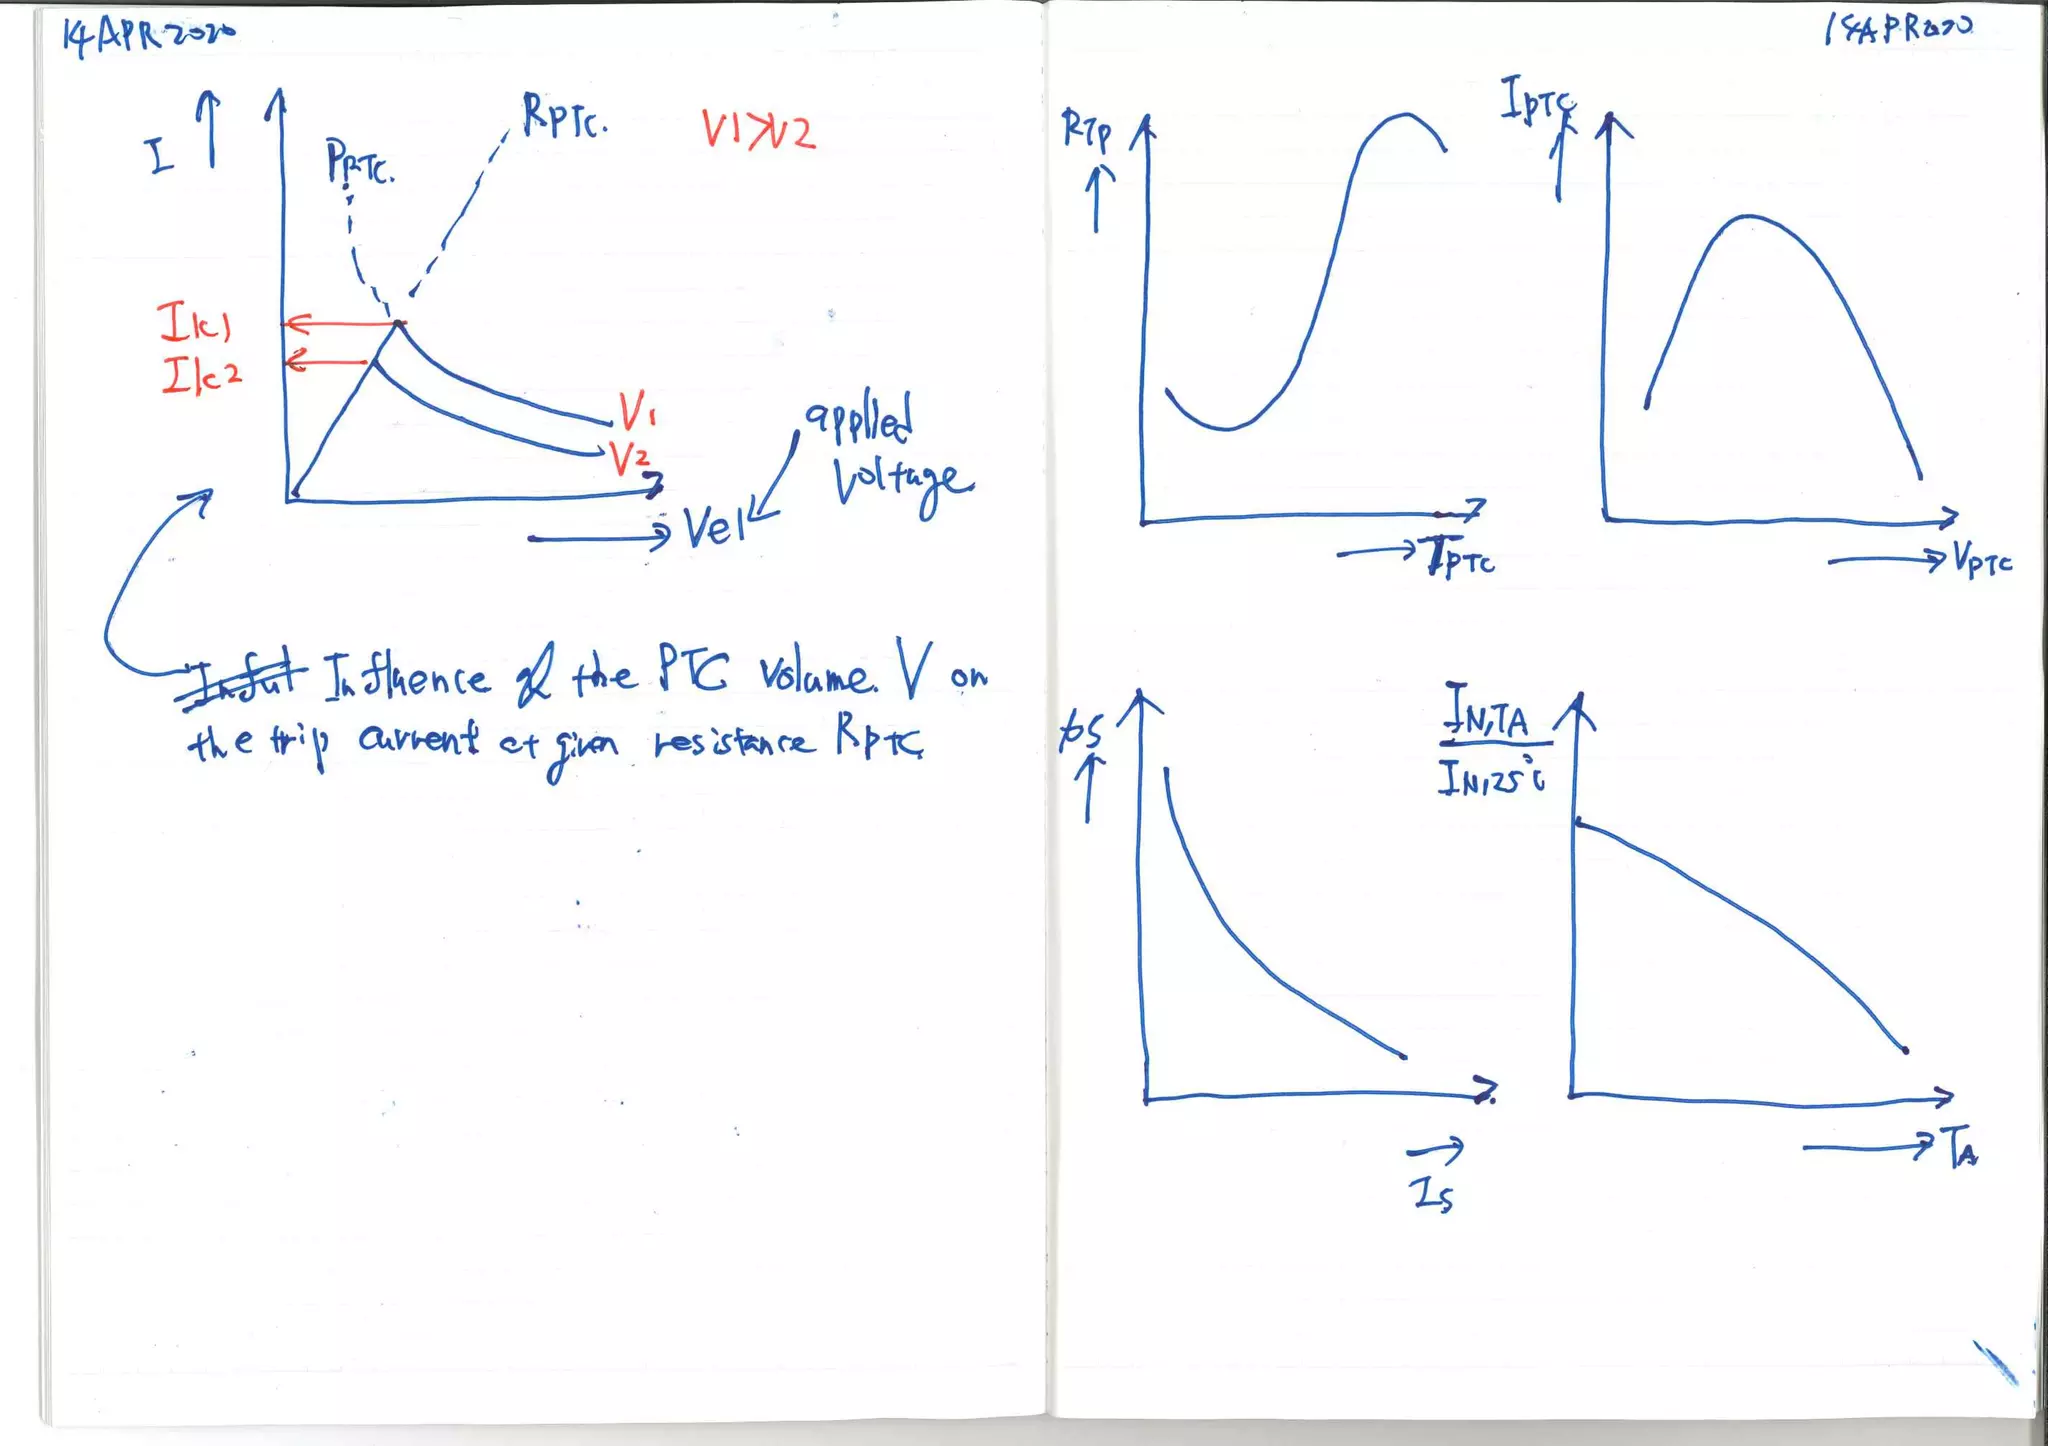 14APR2020
I
PPTC.
RPTC.
V1>V2
Ik1
Ik2
V1
V2
applied
voltage
Vel
Influence of the PTC volume. V on
the trip current at given resistance RPTC
14APR2020
RTP
TPTC
IPTC
VPTC
ts
Is
IN,TA
IN,25°C
TA